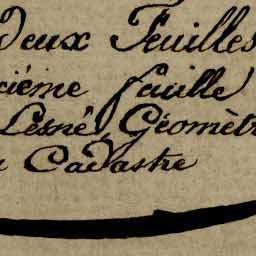 Deux Feuilles
cième feuille
Lesné, Géomètr
u Cadastre